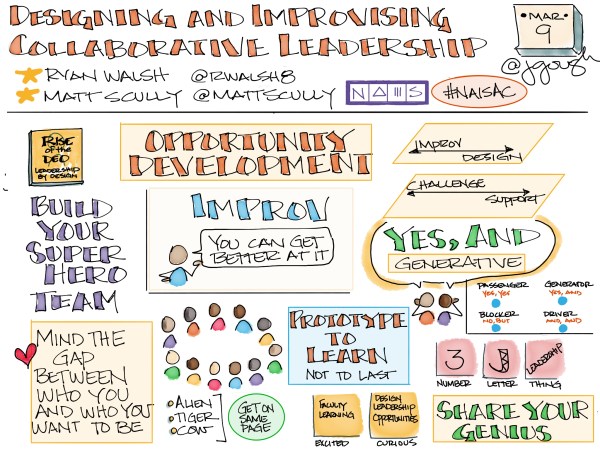 DESIGNING AND IMPROVISING
COLLABORATIVE LEADERSHIP
• MAR. •
9
@jgough
RYAN WALSH @RWALSH8
MATT SCULLY @MATTSCULLY
#NAISAC
RISE
of the
DEO
LEADERSHIP
BY DESIGN
OPPORTUNITY
DEVELOPMENT
IMPROV
DESIGN
CHALLENGE
SUPPORT
BUILD
YOUR
SUPER
HERO
TEAM
IMPROV
YOU CAN GET
BETTER AT IT
YES, AND
GENERATIVE
PASSENGER
YES, YES
GENERATOR
YES, AND
BLOCKER
NO, BUT
DRIVER
AND, AND
MIND THE
GAP
BETWEEN
WHO YOU
AND WHO YOU
WANT TO BE
PROTOTYPE
TO
LEARN
NOT TO LAST
3
NUMBER
LETTER
LEADERSHIP
THING
ALIEN
TIGER
COW
GET ON
SAME
PAGE
FACULTY
LEARNING
EXCITED
DESIGN
LEADERSHIP
OPPORTUNITIES
CURIOUS
SHARE YOUR
GENIUS